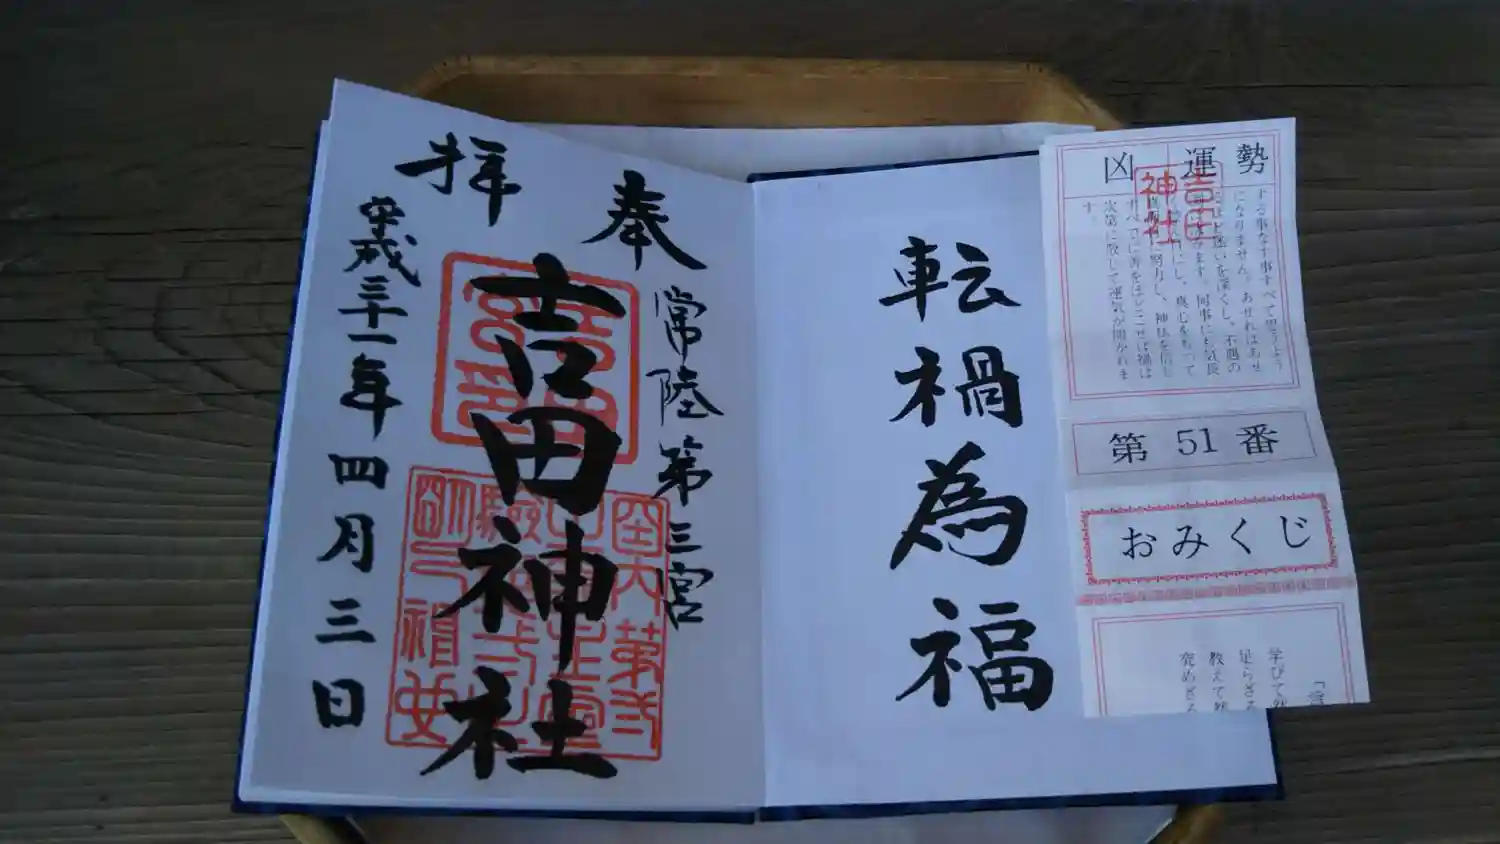 奉
拝
常陸第三宮
吉田神社
平成三十一年四月三日
転禍為福
運勢
凶
吉田
神社
する事なす事すべて思うよう
になりません。あせればあせ
るほど迷いを深くし、不遇の
ます。何事にも気長
にし、真心をもって
努力し、神仏を信じ
すべてに善をほどこせば禍は
次第に散じて運気が開かれま
す。
第51番
おみくじ
学びて然
足らざる
教えて然
究めざる